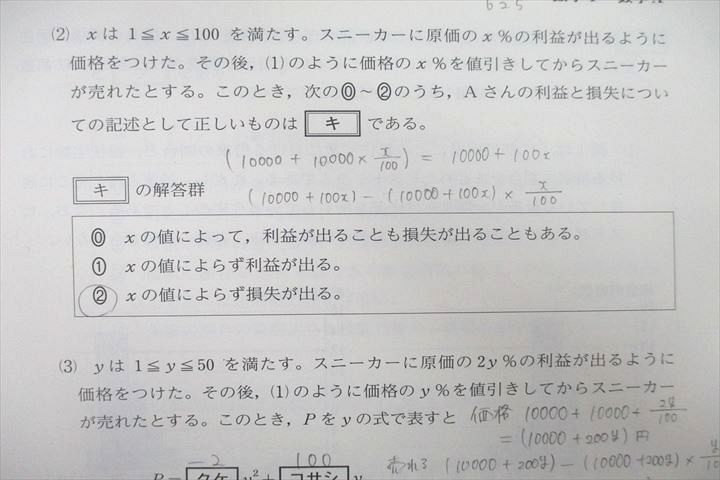 625
(2) x は 1≦x≦100 を満たす。スニーカーに原価の x %の利益が出るように
価格をつけた。その後，(1)のように価格の x %を値引きしてからスニーカー
が売れたとする。このとき，次の⓪～②のうち，Aさんの利益と損失につい
ての記述として正しいものは キ である。
(10000 + 10000 × x/100) = 10000 + 100x
キ の解答群
(10000 + 100x) − (10000 + 100x) × x/100
⓪ x の値によって，利益が出ることも損失が出ることもある。
① x の値によらず利益が出る。
② x の値によらず損失が出る。
(3) y は 1≦y≦50 を満たす。スニーカーに原価の 2y %の利益が出るように
価格をつけた。その後，(1)のように価格の y %を値引きしてからスニーカー
が売れたとする。このとき，P を y の式で表すと 価格 10000 + 10000 + 2y/100
= (10000 + 200y) 円
−2 100 売れる (10000 + 200y) − (10000 + 200y) × y/100
P = クケ y² + コサシ y